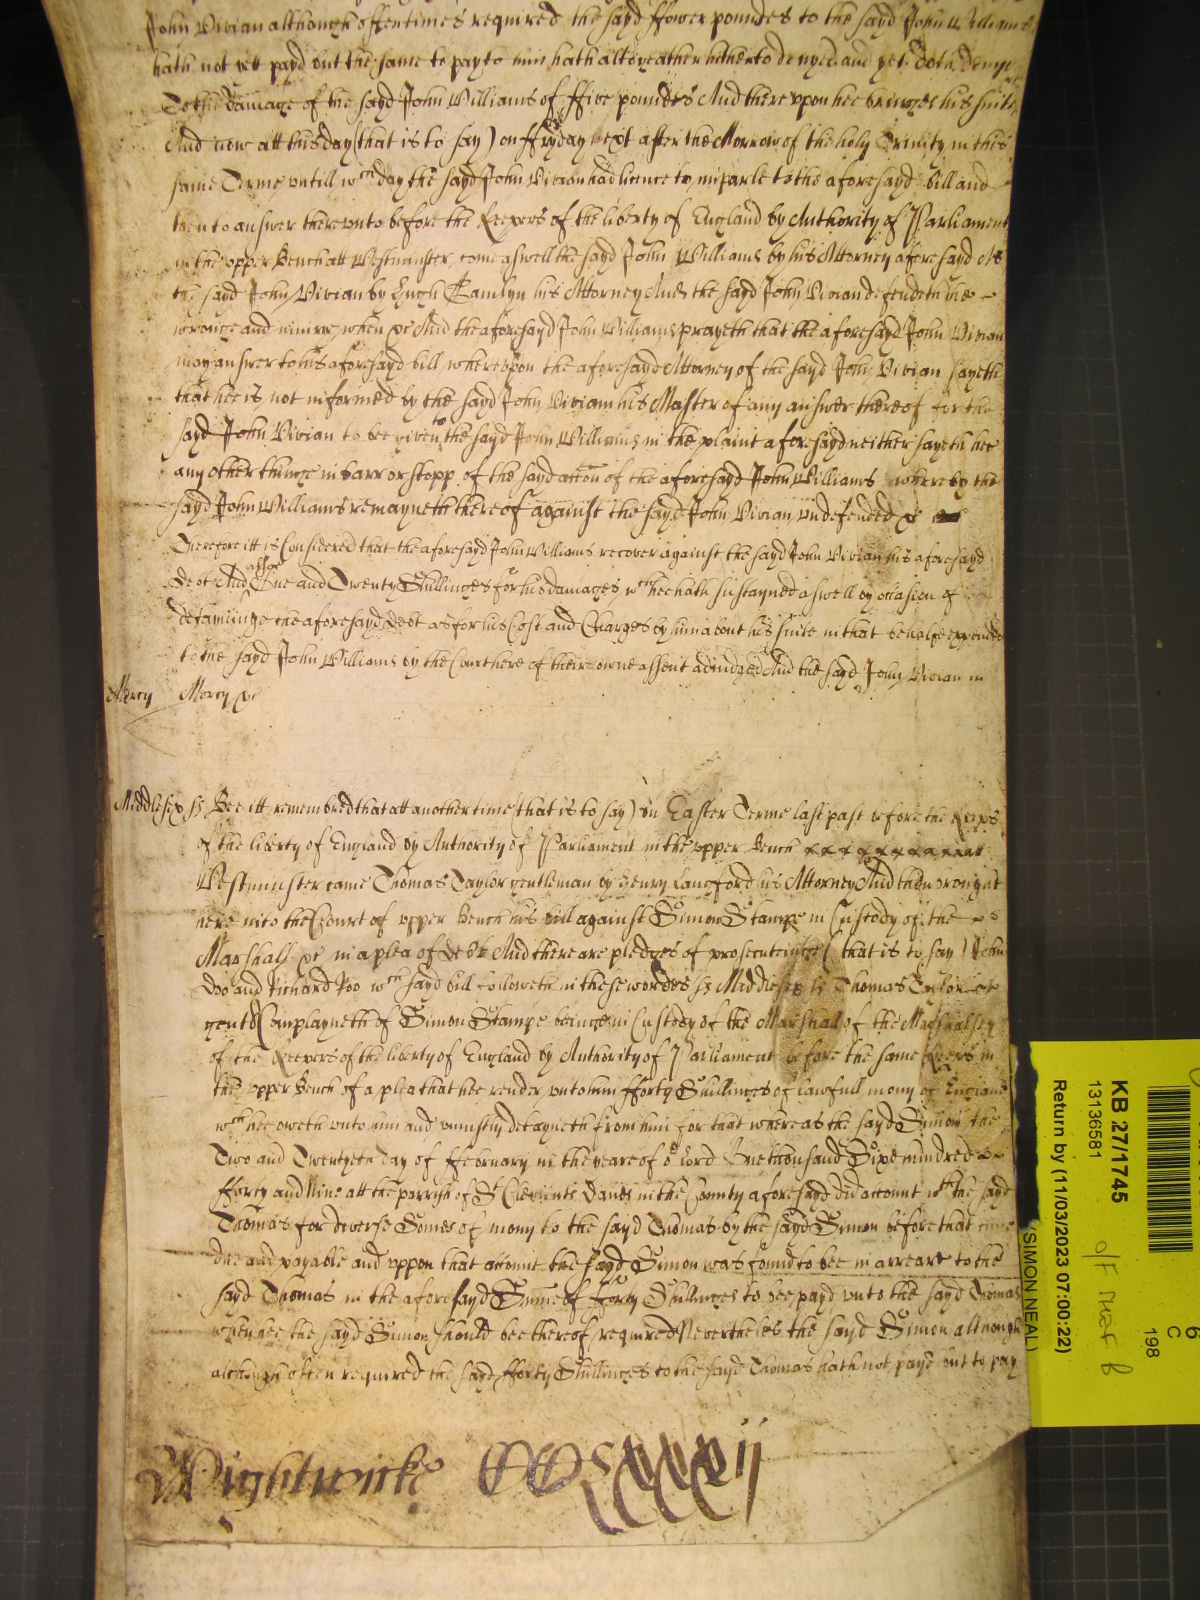 John Vivian although oftentimes required the sayd ffower poundes to the sayd John Williams
hath not yett payd but the same to pay to him hath altogeather hitherto denyed and yet doth deny
To the damage of the sayd John Williams of ffive poundes And thereupon hee bringes his suite
And now att this day (that is to say) on ffryday next after the Morrow of the holy Trinity in this
same Terme untill wch day the sayd John Vivian had licence to imparle to the aforesayd bill and
then to answer thereunto before the Keepers of the liberty of England by Authority of Parliament
in the upper Bench att Westminster came aswell the sayd John Williams by his Attorney aforesayd As
the sayd John Vivian by Hugh Tamlyn his Attorney And the sayd John Vivian defendeth the
wronge and iniury when &c And the aforesayd John Williams prayeth that the aforesayd John Vivian
may answer to his aforesayd bill whereupon the aforesayd Attorney of the sayd John Vivian sayeth
that hee is not informed by the sayd John Vivian his Master of any answer thereof for the
sayd John Vivian to bee given to the sayd John Williams in the plaint aforesayd neither sayeth hee
any other thinge in barr or stopp of the sayd accon of the aforesayd John Williams whereby the
sayd John Williams remayneth thereof against the sayd John Vivian undefended &c
Therefore itt is Considered that the aforesayd John Williams recover against the sayd John Vivian his aforesayd
debt And alsoe One and Twenty Shillinges for his damages wch hee hath sustayned aswell by occasion of
detayninge the aforesayd debt as for his Cost and Charges by him about his suite in that behalfe expended
to the sayd John Williams by the Court here of their owne assent adiudged And the sayd John Vivian in
Mercy Mercy &c
Middlesex ss Bee itt remembred that att another time (that is to say) in Easter Terme last past before the Keeps
of the liberty of England by Authority of Parliament in the upper Bench att
Westminster came Thomas Taylor gentleman by Henry Langford his Attorney And then brought
here into the Court of upper Bench his bill against Simon Stampe in Custody of the
Marshall &c in a plea of debt And there are pledges of prosecutinge (that is to say) John
Doo and Richard Roo wch sayd bill followeth in these wordes ss Middlesex ss Thomas Taylor
gent Complayneth of Simon Stampe beinge in Custody of the Marshall of the Marshalsey
of the Keepers of the liberty of England by Authority of Parliament before the same Keeps in
the upper Bench of a plea that hee render unto him fforty Shillinges of lawfull mony of England
wch hee oweth unto him and uniustly detayneth from him for that whereas the sayd Simon the
Two and Twentyeth day of ffebruary in the yeare of or Lord One thousand Sixe hundred
fforty and Nine att the parrish of St Clements Danes in the County aforesayd did account wth the sayd
Thomas for diverse Somes of mony to the sayd Thomas by the sayd Simon before that time
due and payable and uppon that account the sayd Simon was found to bee in arreare to the
sayd Thomas in the aforesayd Summe of fforty Shillinges to bee payd unto the sayd Thomas
when hee the sayd Simon should bee thereof required Neverthelesse the sayd Simon although
although often required the sayd fforty Shillinges to the sayd Thomas hath not payd but to pay
Wightwicke CCLXXXXII
KB 27/1745
13136581
Return by (11/03/2023 07:00:22)
(SIMON NEAL)
6
C
198